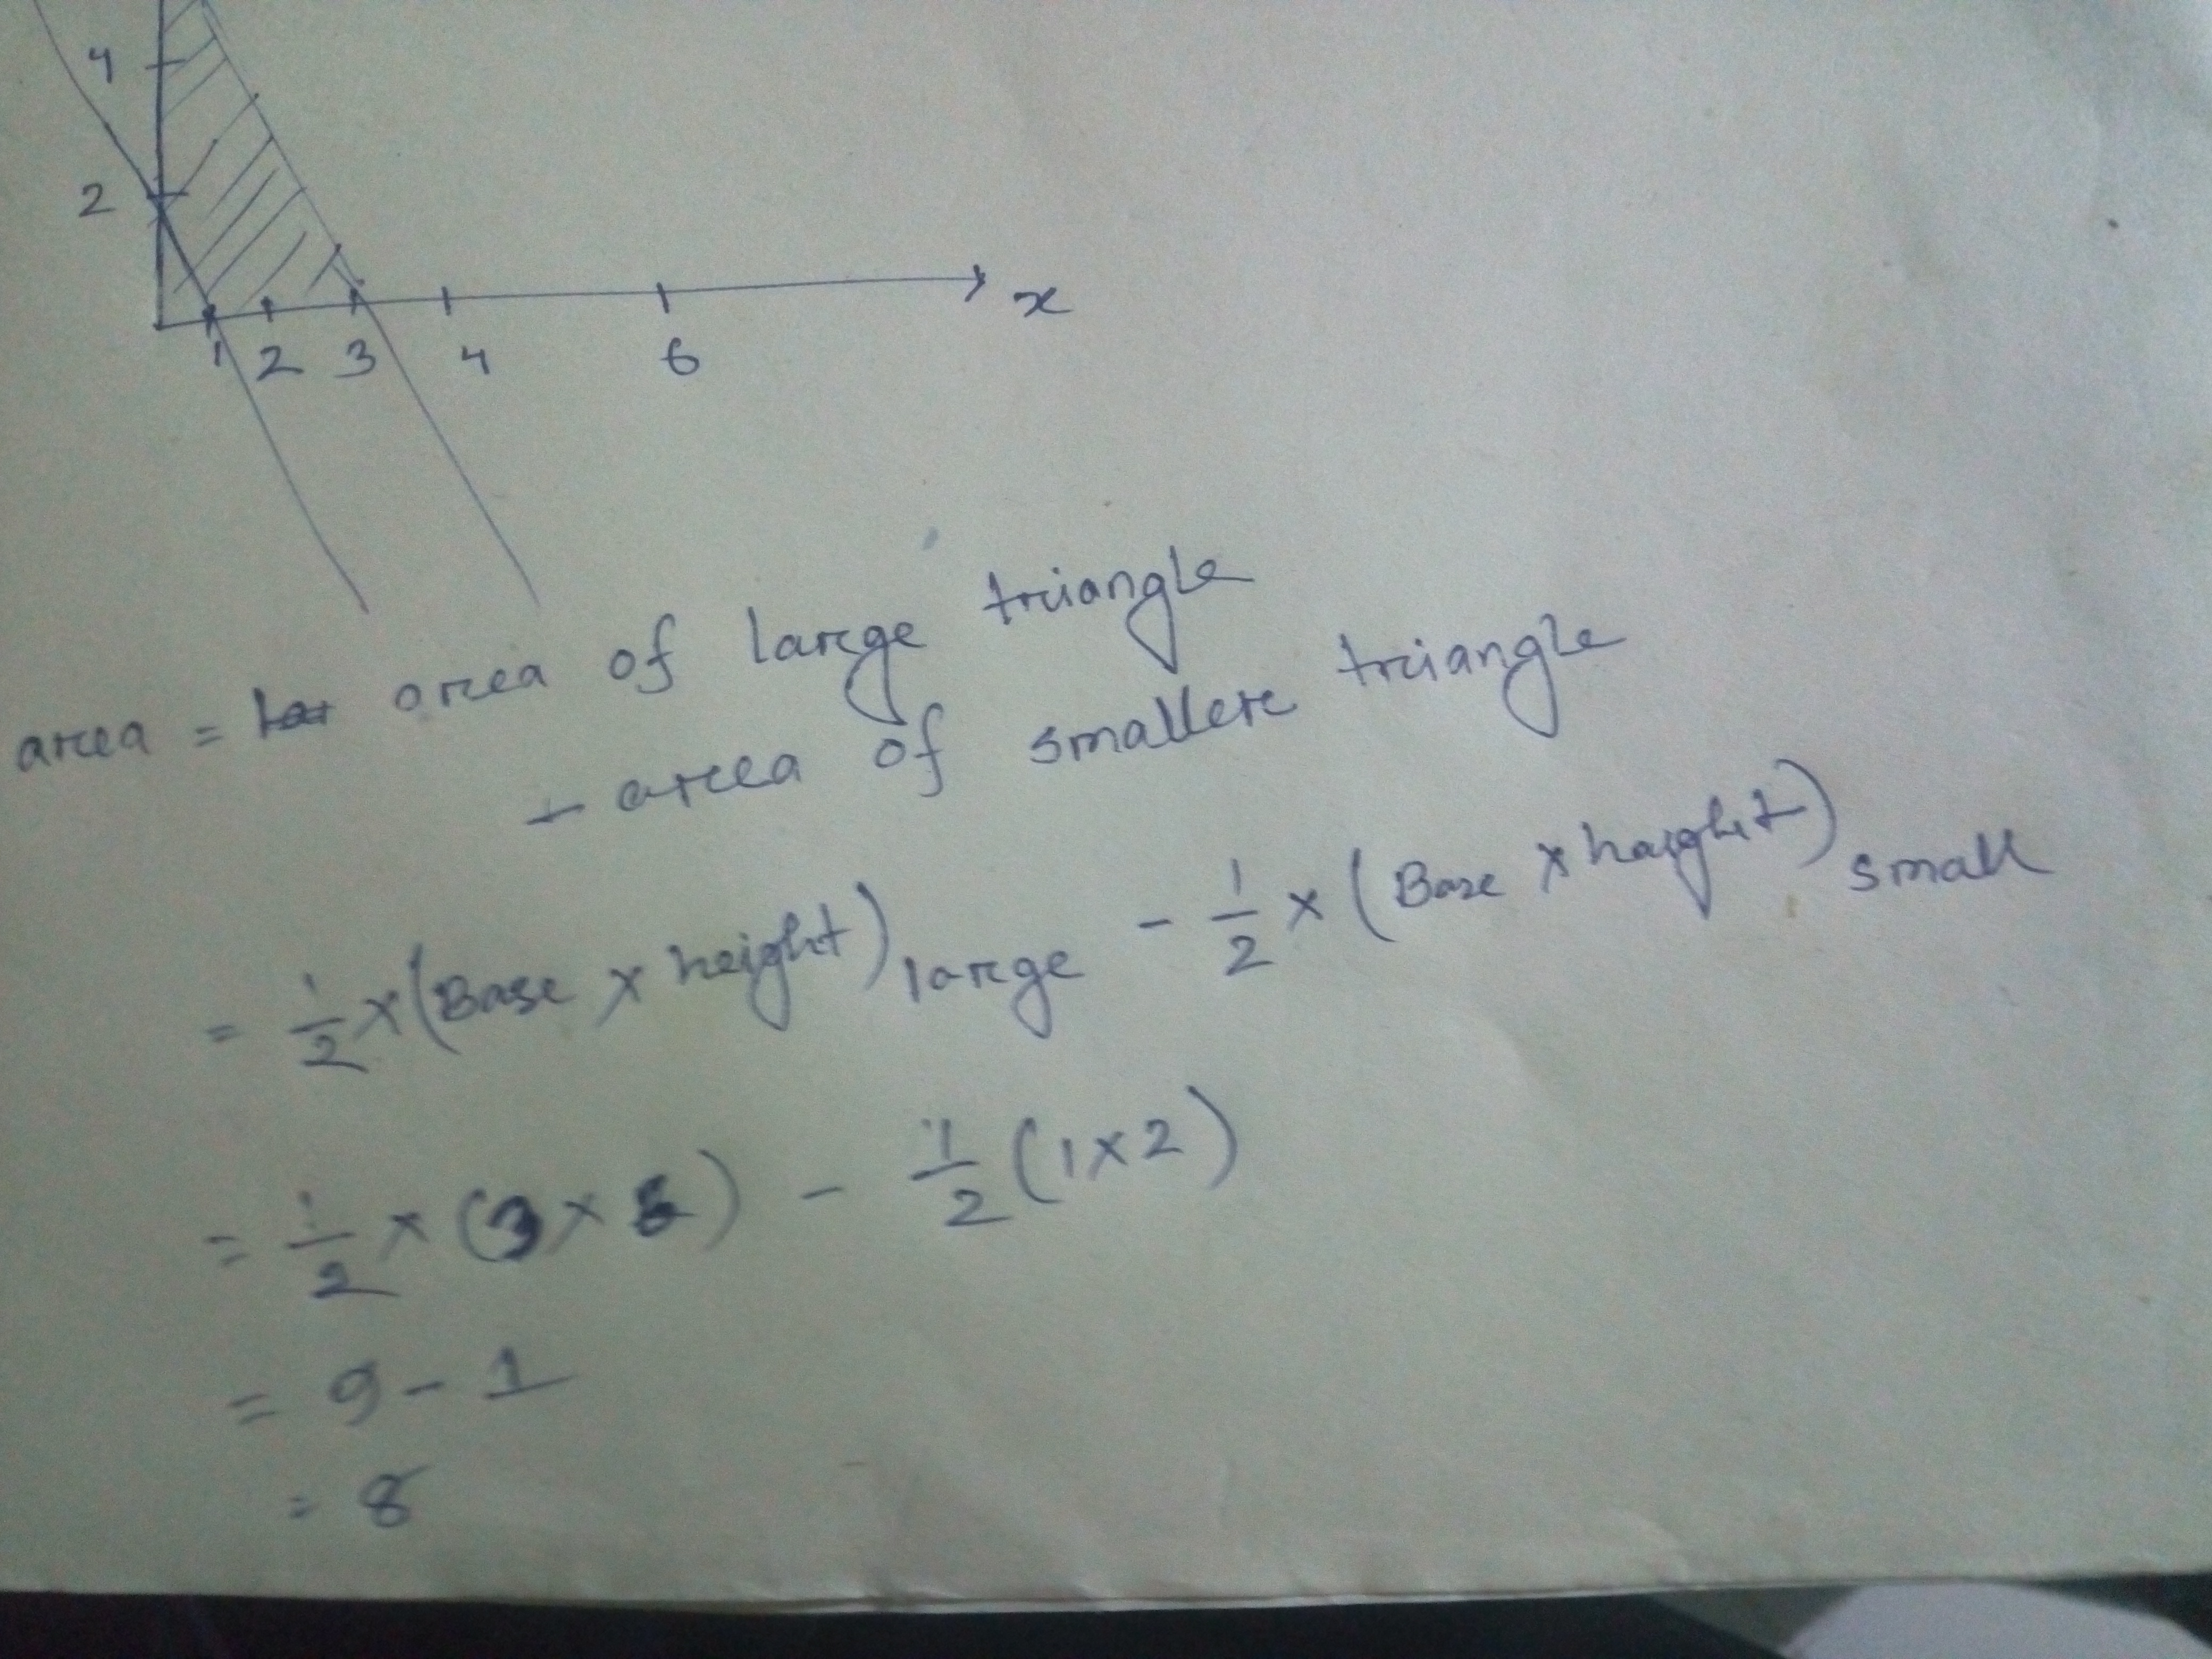 4
2
x
1 2 3 4 6
area = area of large triangle
- area of smaller triangle
= 1/2 × (Base × height) large - 1/2 × (Base × haight) small
= 1/2 × (3 × 6) - 1/2 (1×2)
= 9 - 1
= 8